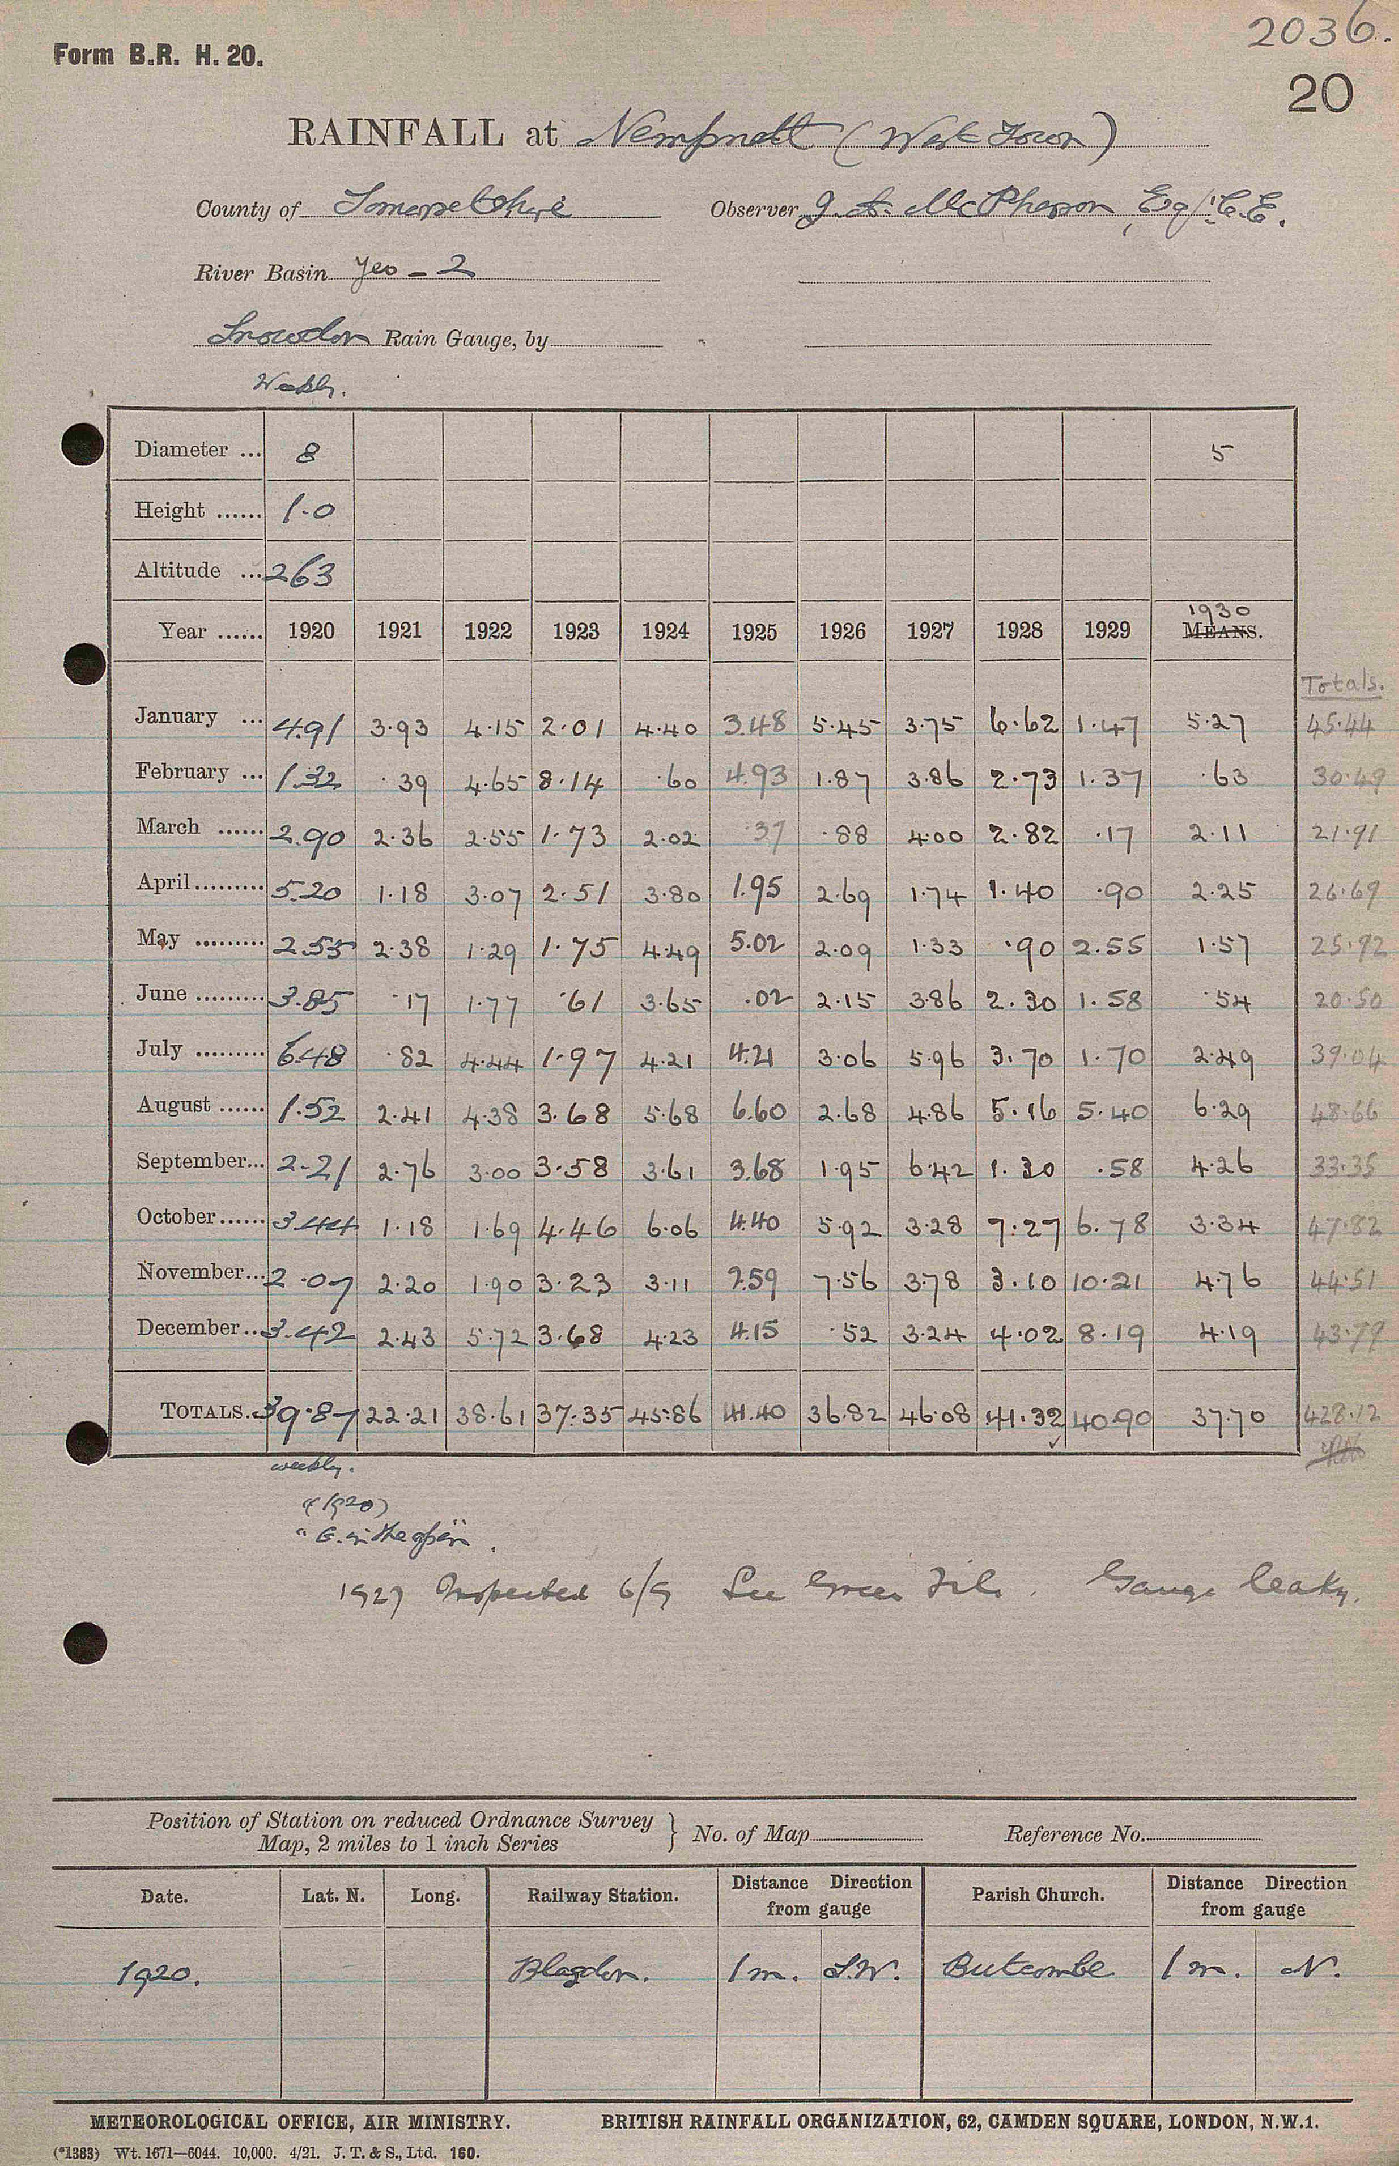 2036.
Form B.R. H. 20.
20
RAINFALL at Nempnett (West Town)
County of Somersetshire Observer J. A. McPherson, Esq., C.E.
River Basin Yeo - 2
Snowdon Rain Gauge, by
Weekly.
Diameter ... 8 5
Height ...... 1.0
Altitude ... 263
Year ...... 1920 1921 1922 1923 1924 1925 1926 1927 1928 1929 1930 MEANS.
Totals.
January ... 4.91 3.93 4.15 2.01 4.40 3.48 5.45 3.75 6.62 1.47 5.27 45.44
February ... 1.32 .39 4.65 8.14 .60 4.93 1.87 3.86 2.73 1.37 .63 30.49
March ...... 2.90 2.36 2.55 1.73 2.02 .37 .88 4.00 2.82 .17 2.11 21.91
April......... 5.20 1.18 3.07 2.51 3.80 1.95 2.69 1.74 1.40 .90 2.25 26.69
May ......... 2.55 2.38 1.29 1.75 4.49 5.02 2.09 1.33 .90 2.55 1.57 25.92
June ......... 3.85 .17 1.77 .61 3.65 .02 2.15 3.86 2.30 1.58 .54 20.50
July ......... 6.48 .82 4.44 1.97 4.21 4.21 3.06 5.96 3.70 1.70 2.49 39.04
August ...... 1.52 2.41 4.38 3.68 5.68 6.60 2.68 4.86 5.16 5.40 6.29 48.66
September... 2.21 2.76 3.00 3.58 3.61 3.68 1.95 6.42 1.30 .58 4.26 33.35
October...... 3.44 1.18 1.69 4.46 6.06 4.40 5.92 3.28 7.27 6.78 3.34 47.82
November... 2.07 2.20 1.90 3.23 3.11 2.59 7.56 3.78 3.10 10.21 4.76 44.51
December... 3.42 2.43 5.72 3.68 4.23 4.15 .52 3.24 4.02 8.19 4.19 43.79
TOTALS. 39.87 22.21 38.61 37.35 45.86 41.40 36.82 46.08 41.32 40.90 37.70 428.12
weekly.
(1920)
"G. in the open".
1927 Inspected 6/9 See Green File. Gauge leaky.
Position of Station on reduced Ordnance Survey
Map, 2 miles to 1 inch Series } No. of Map Reference No.
Date. Lat. N. Long. Railway Station. Distance Direction from gauge Parish Church. Distance Direction from gauge
1920. Blagdon. 1 m. S.W. Butcombe 1 m. N.
METEOROLOGICAL OFFICE, AIR MINISTRY. BRITISH RAINFALL ORGANIZATION, 62, CAMDEN SQUARE, LONDON, N.W.1.
(*1383) Wt. 1671—6044. 10,000. 4/21. J. T. & S., Ltd. 160.